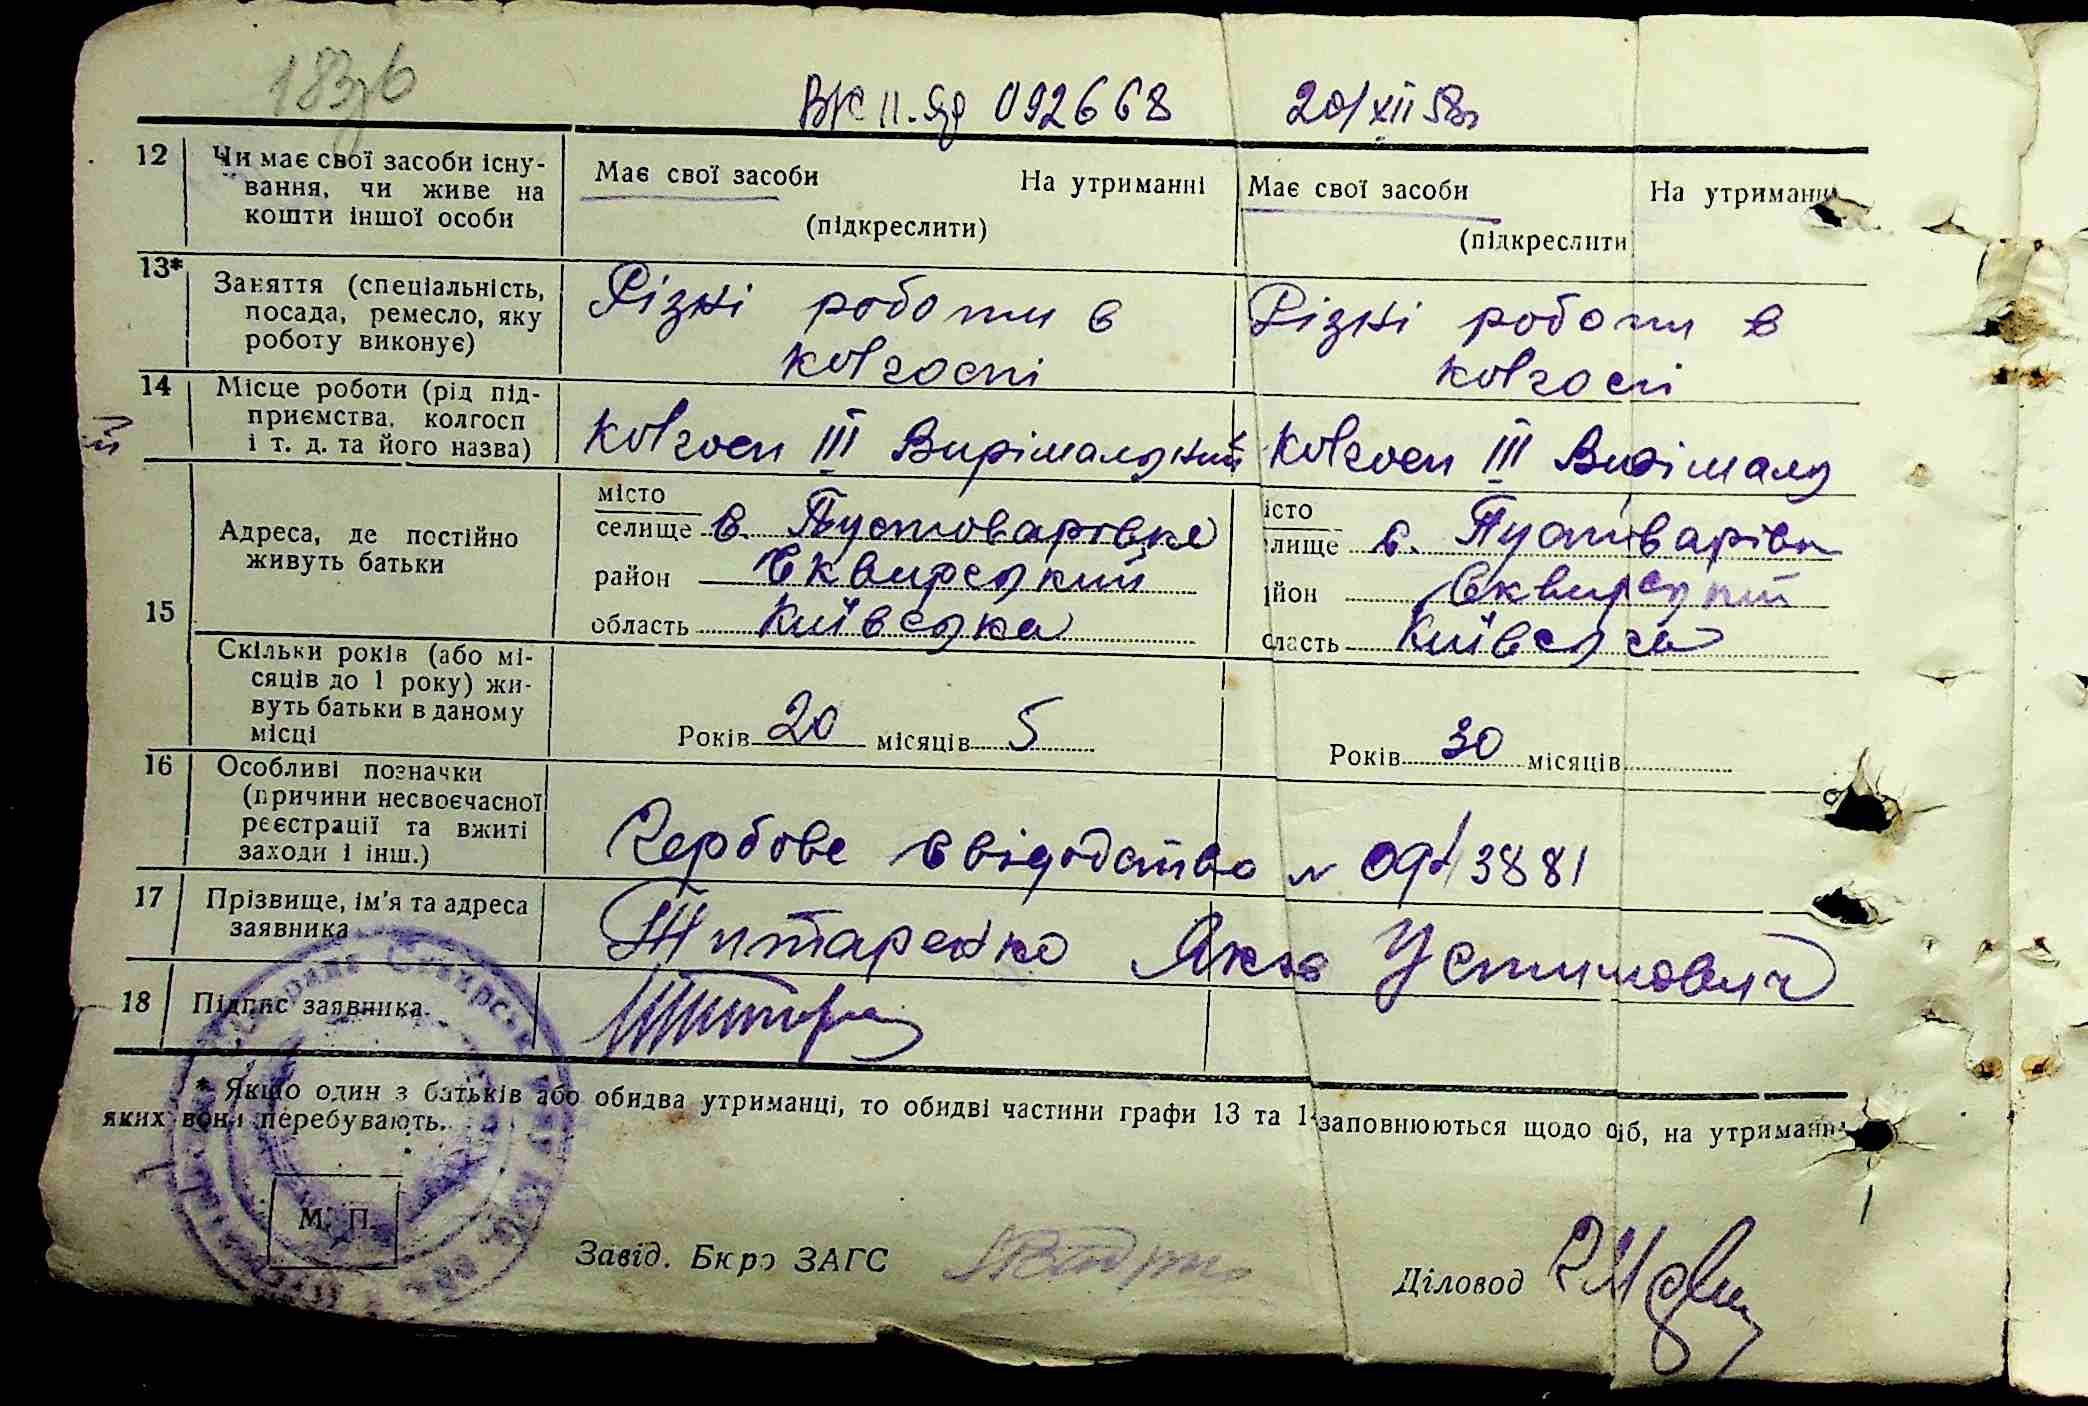 183/6
ВК II-ЯР 092668 20/XII 58 г
12 Чи має свої засоби існу- Має свої засоби На утриманні Має свої засоби На утриманні
вання, чи живе на
кошти іншої особи (підкреслити) (підкреслити
13* Заняття (спеціальність, Різні роботи в Різні роботи в
посада, ремесло, яку
роботу виконує) колгоспі колгоспі
14 Місце роботи (рід під-
приємства, колгосп Колгосп ІІІ Вирішальний Колгосп ІІІ Вирішаль
і т. д. та його назва)
15 Адреса, де постійно
живуть батьки
місто істо
селище с. Пустоварівка лище с. Пустоварівка
район Сквирський йон Сквирський
область Київська сласть Київська
Скільки років (або мі-
сяців до 1 року) жи-
вуть батьки в даному
місці Років 20 місяців 5 Років 30 місяців
16 Особливі позначки
(причини несвоєчасної
реєстрації та вжиті
заходи і інш.) Гербове свідодство N 3881
17 Прізвище, ім'я та адреса Титаренко Яків Устимович
заявника
18 Підпис заявника Титар
* Якщо один з батьків або обидва утриманці, то обидві частини графи 13 та 14 заповнюються щодо осіб, на утриманні
яких вони перебувають.
М. П.
Завід. Бюро ЗАГС Діловод